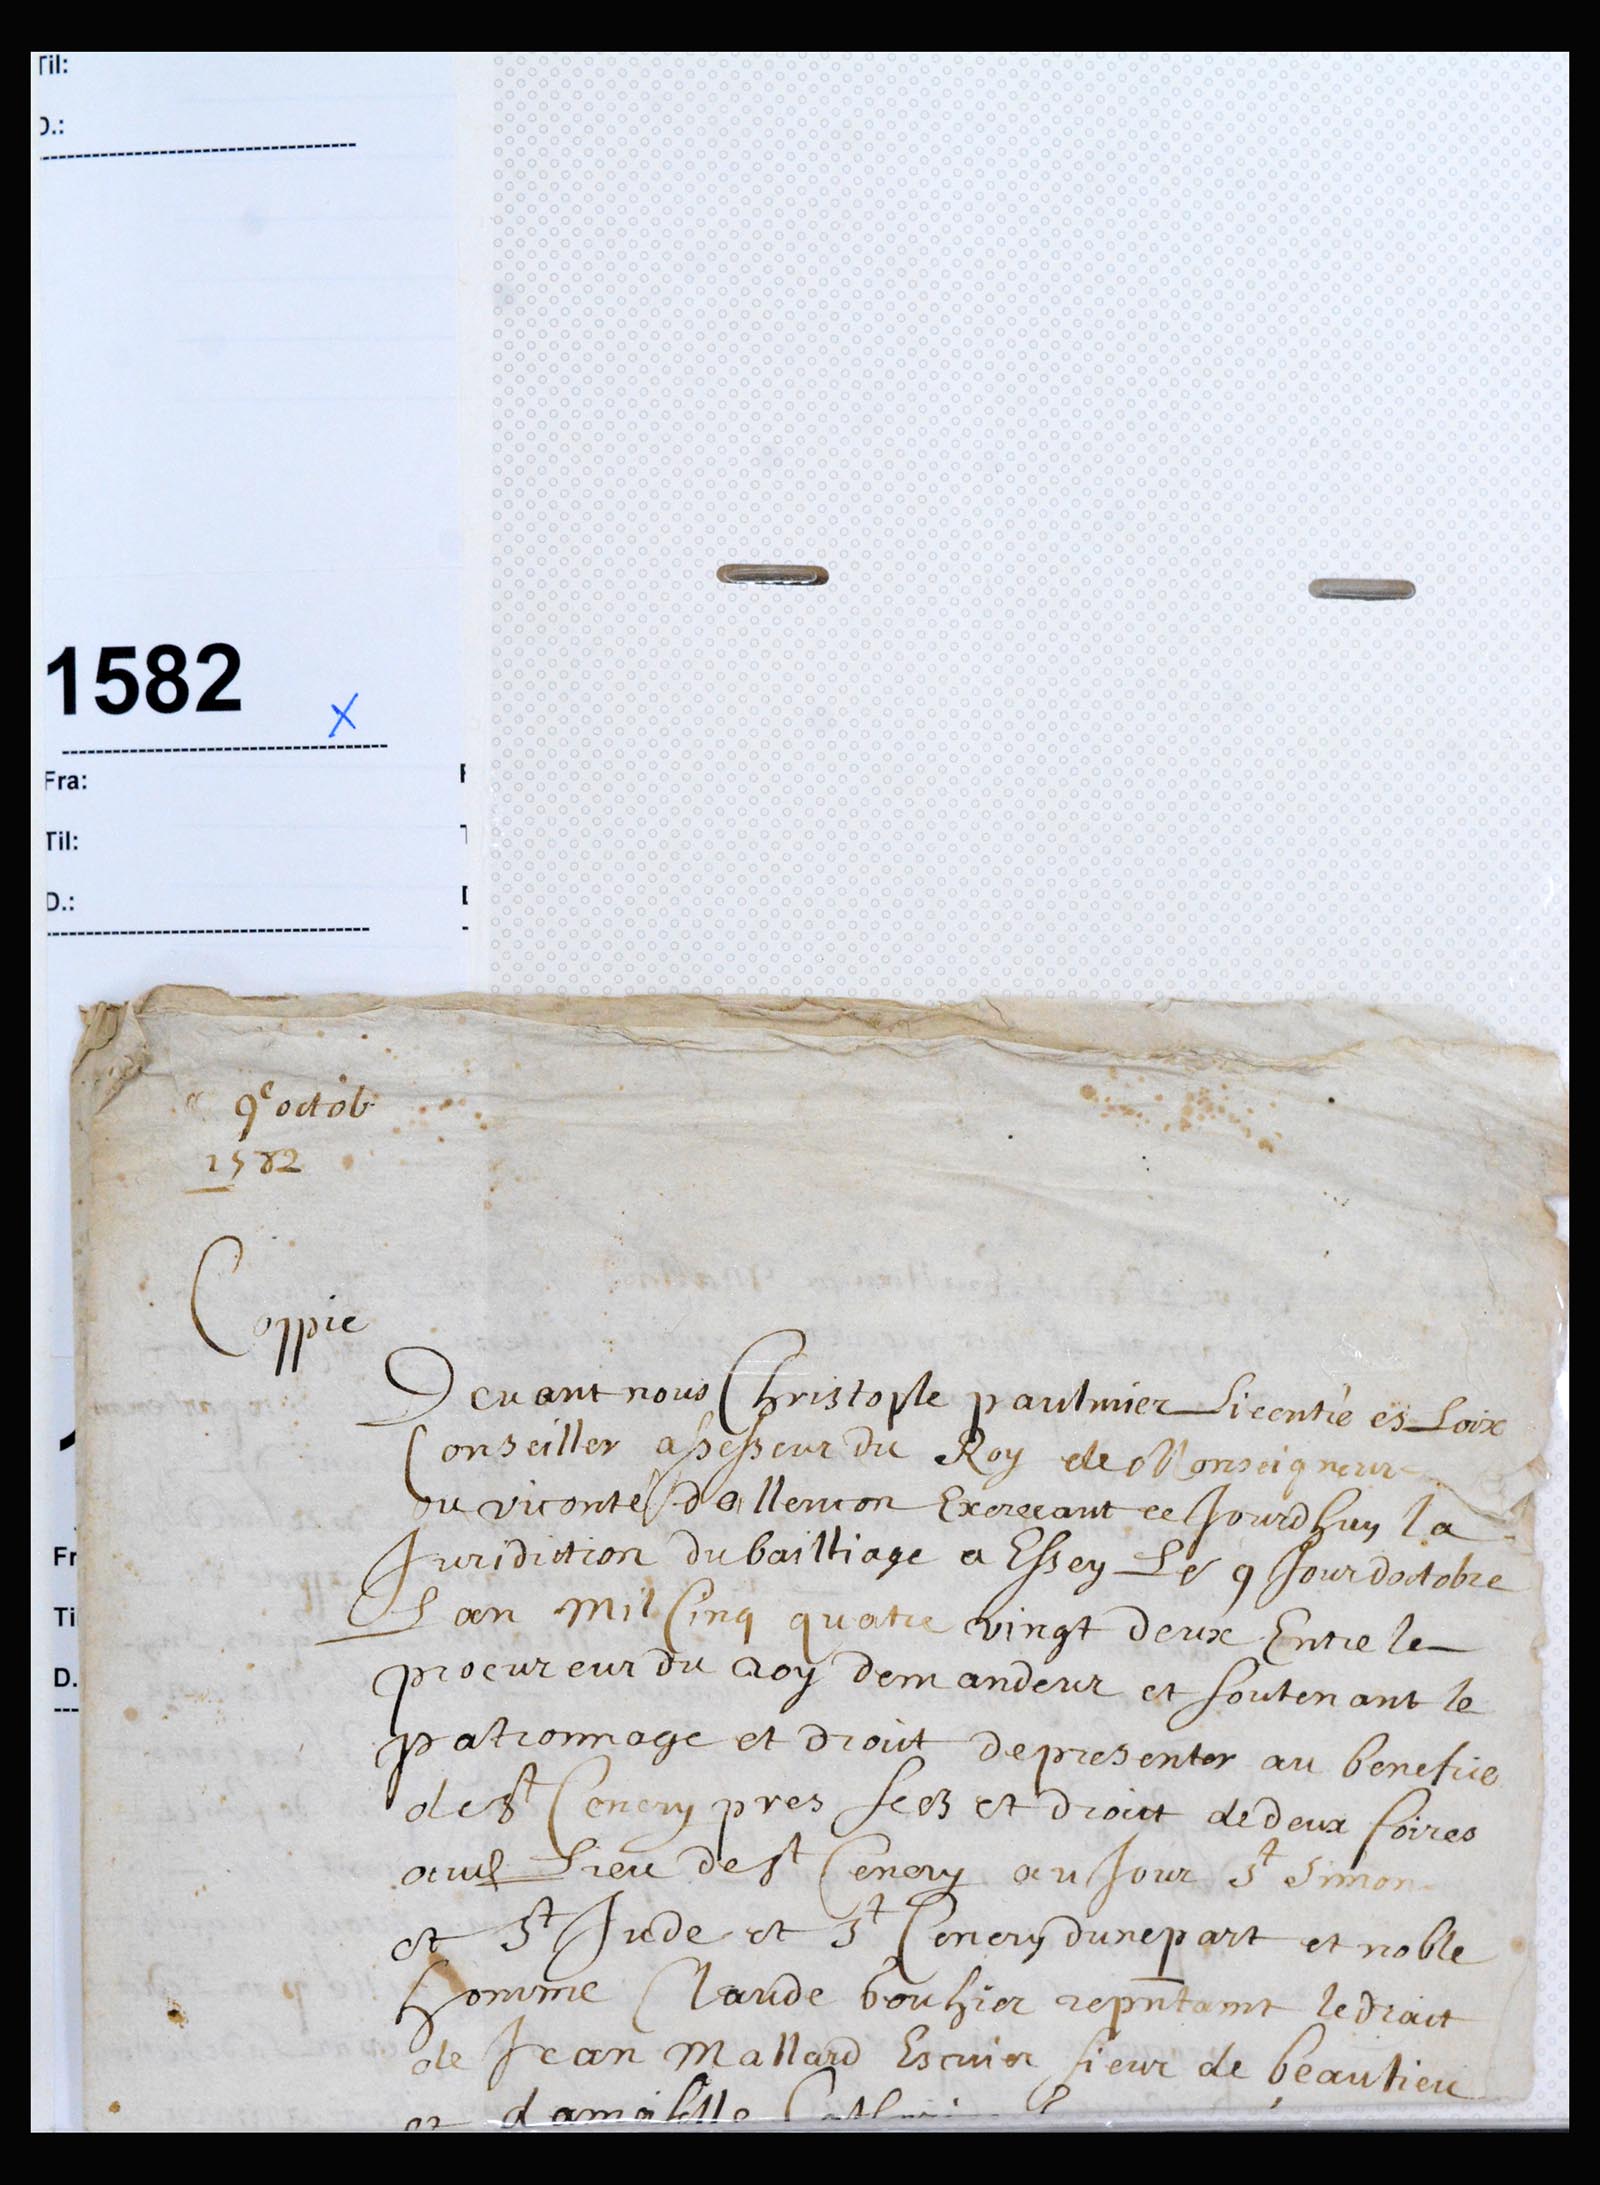 Til:
D.:
1582
X
Fra:
Til:
D.:
9e octob
1582
Coppie
Devant nous Christople paulmier Licentié es Loix
Conseiller assesseur du Roy de Monseigneur
ou viconté dallencon Exerceant ce Jourdhuy la
Juridiction du bailliage a Essey Le 9 Jour doctobre
Lan Mil Cinq quatre vingt deux Entre le
procureur du Roy demandeur et soutenant le
patronnage et droict de presenter au benefice
de st Cenery pres sees et droict de deux foires
aud Lieu de st Cenery au Jour st Simon
et st Jude et st Cenery dune part et noble
homme Claude bouhier repntant le droict
de Jean Mallard Escuier sieur de beaulieu
et damoiselle
Fr
Ti
D.